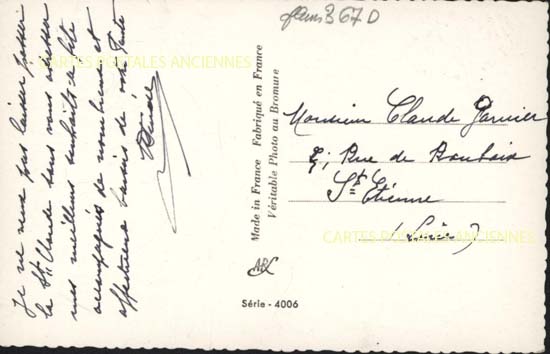 Je ne veux pas laisser passer
la St Claude sans vous adresser
mes meilleurs souhaits de fête
accompagnés de nombreux et
affectueux baisers de votre
Made in France Fabriqué en France
Véritable Photo au Bromure
367 D
Monsieur Claude Garnier
Rue de Roubaix
St Etienne
(Loire)
ABC
Série - 4006
CARTES POSTALES ANCIENNES
CARTES POSTALES ANCIENNES